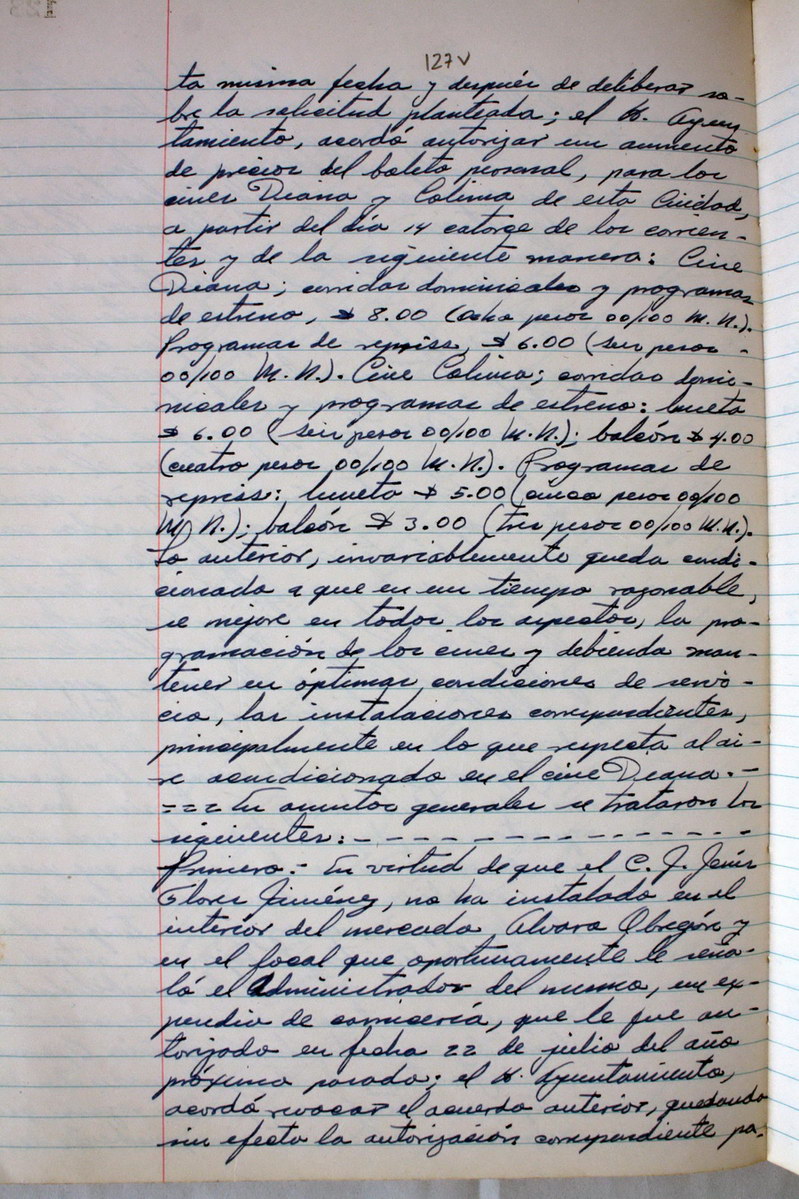 127v
ta misma fecha y después de deliberar so-
bre la solicitud planteada; el H. Ayun
tamiento, acordó autorizar un aumento
de precios del boleto personal, para los
cines Diana y Colima de esta Ciudad,
a partir del día 14 catorce de los corrien-
tes y de la siguiente manera: Cine
Diana; corridas dominicales y programas
de estreno, $ 8.00 (ocho pesos 00/100 M.N.).
Programas de repriss, $ 6.00 (seis pesos -
00/100 M.N.). Cine Colima; corridas domi-
nicales y programas de estreno: luneta
$ 6.00 (seis pesos 00/100 M.N.); balcón $ 4.00
(cuatro pesos 00/100 M.N.). Programas de
repriss: luneta $ 5.00 (cinco pesos 00/100
M.N.); balcón $ 3.00 (tres pesos 00/100 M.N.).
Lo anterior, invariablemente queda condi-
cionado a que en un tiempo razonable,
se mejore en todos los aspectos, la pro-
gramación de los cines y debiendo man-
tener en óptimas condiciones de servi-
cio, las instalaciones correspondientes,
principalmente en lo que respecta al ai-
re acondicionado en el cine Diana.-
=== En asuntos generales se trataron los
siguientes:- - - - - - - - - - - - - - -
Primero.- En virtud de que el C. J. Jesús
Flores Jiménez, no ha instalado en el
interior del mercado Alvaro Obregón y
en el local que oportunamente le seña-
ló el Administrador del mismo, un ex-
pendio de carnicería, que le fue au-
torizado en fecha 22 de julio del año
próximo pasado; el H. Ayuntamiento,
acordó revocar el acuerdo anterior, quedando
sin efecto la autorización correspondiente pa-